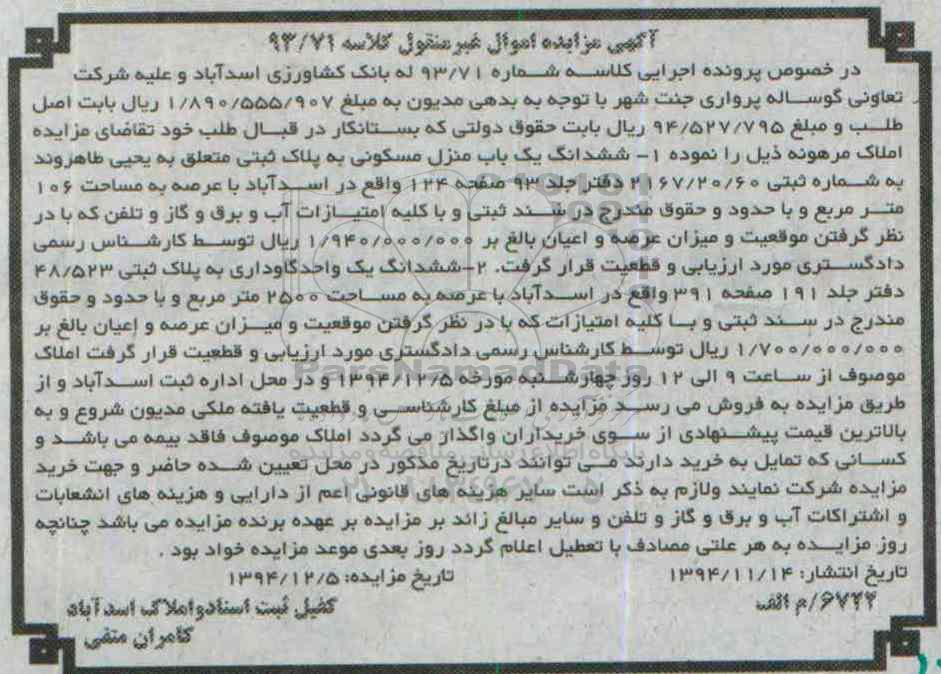 آگهی مزایده اموال غیرمنقول کلاسه ۹۳/۷۱
در خصوص پرونده اجرایی کلاسه شماره ۹۳/۷۱ له بانک کشاورزی اسدآباد و علیه شرکت
تعاونی گوساله پرواری جنت شهر با توجه به بدهی مدیون به مبلغ ۱/۸۹۰/۵۵۵/۹۰۷ ریال بابت اصل
طلب و مبلغ ۹۴/۵۲۷/۷۹۵ ریال بابت حقوق دولتی که بستانکار در قبال طلب خود تقاضای مزایده
املاک مرهونه ذیل را نموده ۱- ششدانگ یک باب منزل مسکونی به پلاک ثبتی متعلق به یحیی طاهروند
به شماره ثبتی ۲۱۶۷/۲۰/۶۰ دفتر جلد ۹۳ صفحه ۱۲۴ واقع در اسدآباد با عرصه به مساحت ۱۰۶
متر مربع و با حدود و حقوق مندرج در سند ثبتی و با کلیه امتیازات آب و برق و گاز و تلفن که با در
نظر گرفتن موقعیت و میزان عرصه و اعیان بالغ بر ۱/۹۴۰/۰۰۰/۰۰۰ ریال توسط کارشناس رسمی
دادگستری مورد ارزیابی و قطعیت قرار گرفت. ۲-ششدانگ یک واحدگاوداری به پلاک ثبتی ۴۸/۵۲۳
دفتر جلد ۱۹۱ صفحه ۳۹۱ واقع در اسدآباد با عرصه به مساحت ۲۵۰۰ متر مربع و با حدود و حقوق
مندرج در سند ثبتی و با کلیه امتیازات که با در نظر گرفتن موقعیت و میزان عرصه و اعیان بالغ بر
۱/۷۰۰/۰۰۰/۰۰۰ ریال توسط کارشناس رسمی دادگستری مورد ارزیابی و قطعیت قرار گرفت املاک
موصوف از ساعت ۹ الی ۱۲ روز چهارشنبه مورخه ۱۳۹۴/۱۲/۵ و در محل اداره ثبت اسدآباد و از
طریق مزایده به فروش می رسد مزایده از مبلغ کارشناسی و قطعیت یافته ملکی مدیون شروع و به
بالاترین قیمت پیشنهادی از سوی خریداران واگذار می گردد املاک موصوف فاقد بیمه می باشد و
کسانی که تمایل به خرید دارند می توانند درتاریخ مذکور در محل تعیین شده حاضر و جهت خرید
مزایده شرکت نمایند ولازم به ذکر است سایر هزینه های قانونی اعم از دارایی و هزینه های انشعابات
و اشتراکات آب و برق و گاز و تلفن و سایر مبالغ زائد بر مزایده بر عهده برنده مزایده می باشد چنانچه
روز مزایده به هر علتی مصادف با تعطیل اعلام گردد روز بعدی موعد مزایده خواد بود .
تاریخ انتشار: ۱۳۹۴/۱۱/۱۴ تاریخ مزایده: ۱۳۹۴/۱۲/۵
۶۷۲۲/م الف کفیل ثبت اسنادواملاک اسدآباد
کامران متقی
ParsNamadData
پایگاه اطلاع رسانی مناقصه و مزایده